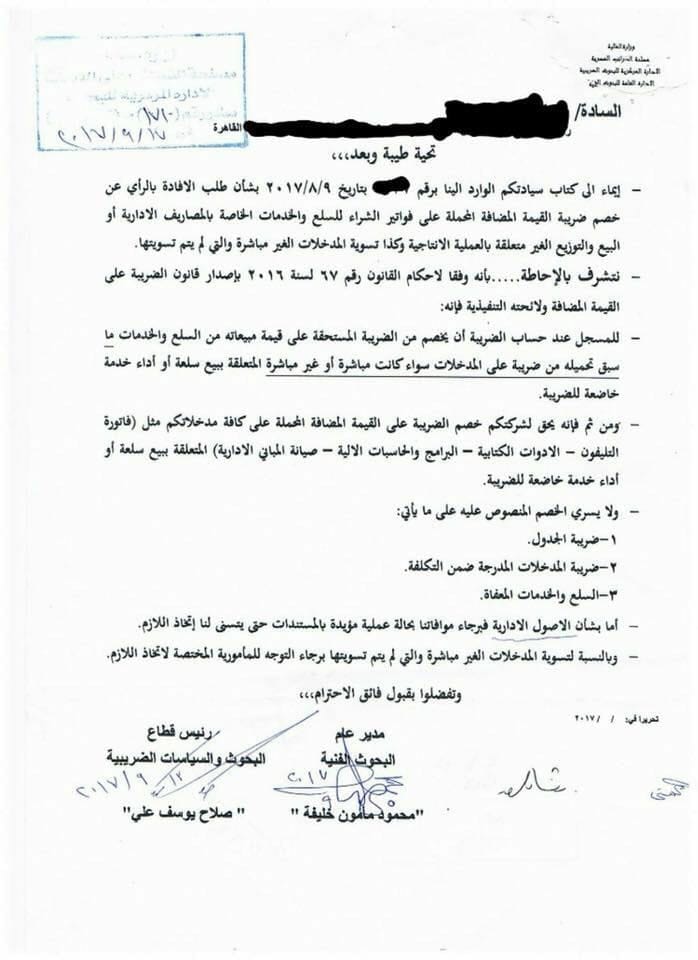 وزارة المالية
مصلحة الضرائب المصرية
الادارة المركزية للبحوث الضريبية
الادارة العامة للبحوث الفنية
السادة/
القاهرة
٢٠١٧/٩/١٧
تحية طيبة وبعد،،،
– إيماء الى كتاب سيادتكم الوارد الينا برقم بتاريخ ٢٠١٧/٨/٩ بشأن طلب الافادة بالرأي عن
خصم ضريبة القيمة المضافة المحملة على فواتير الشراء للسلع والخدمات الخاصة بالمصاريف الادارية أو
البيع والتوزيع الغير متعلقة بالعملية الانتاجية وكذا تسوية المدخلات الغير مباشرة والتي لم يتم تسويتها.
– نتشرف بالإحاطة.....بأنه وفقا لاحكام القانون رقم ٦٧ لسنة ٢٠١٦ بإصدار قانون الضريبة على
القيمة المضافة ولائحته التنفيذية فإنه:
– للمسجل عند حساب الضريبة أن يخصم من الضريبة المستحقة على قيمة مبيعاته من السلع والخدمات ما
سبق تحميله من ضريبة على المدخلات سواء كانت مباشرة أو غير مباشرة المتعلقة ببيع سلعة أو أداء خدمة
خاضعة للضريبة.
– ومن ثم فإنه يحق لشركتكم خصم الضريبة على القيمة المضافة المحملة على كافة مدخلاتكم مثل (فاتورة
التليفون – الادوات الكتابية – البرامج والحاسبات الالية – صيانة المباني الادارية) المتعلقة ببيع سلعة أو
أداء خدمة خاضعة للضريبة.
– ولا يسري الخصم المنصوص عليه على ما يأتي:
١–ضريبة الجدول.
٢–ضريبة المدخلات المدرجة ضمن التكلفة.
٣–السلع والخدمات المعفاة.
– أما بشأن الاصول الادارية فبرجاء موافاتنا بحالة عملية مؤيدة بالمستندات حتى يتسنى لنا إتخاذ اللازم.
– وبالنسبة لتسوية المدخلات الغير مباشرة والتي لم يتم تسويتها برجاء التوجه للمأمورية المختصة لاتخاذ اللازم.
وتفضلوا بقبول فائق الاحترام،،،
تحريرا في: / / ٢٠١٧
مدير عام
البحوث الفنية
"محمود مأمون خليفة "
رئيس قطاع
البحوث والسياسات الضريبية
٢٠١٧/٩
" صلاح يوسف علي"